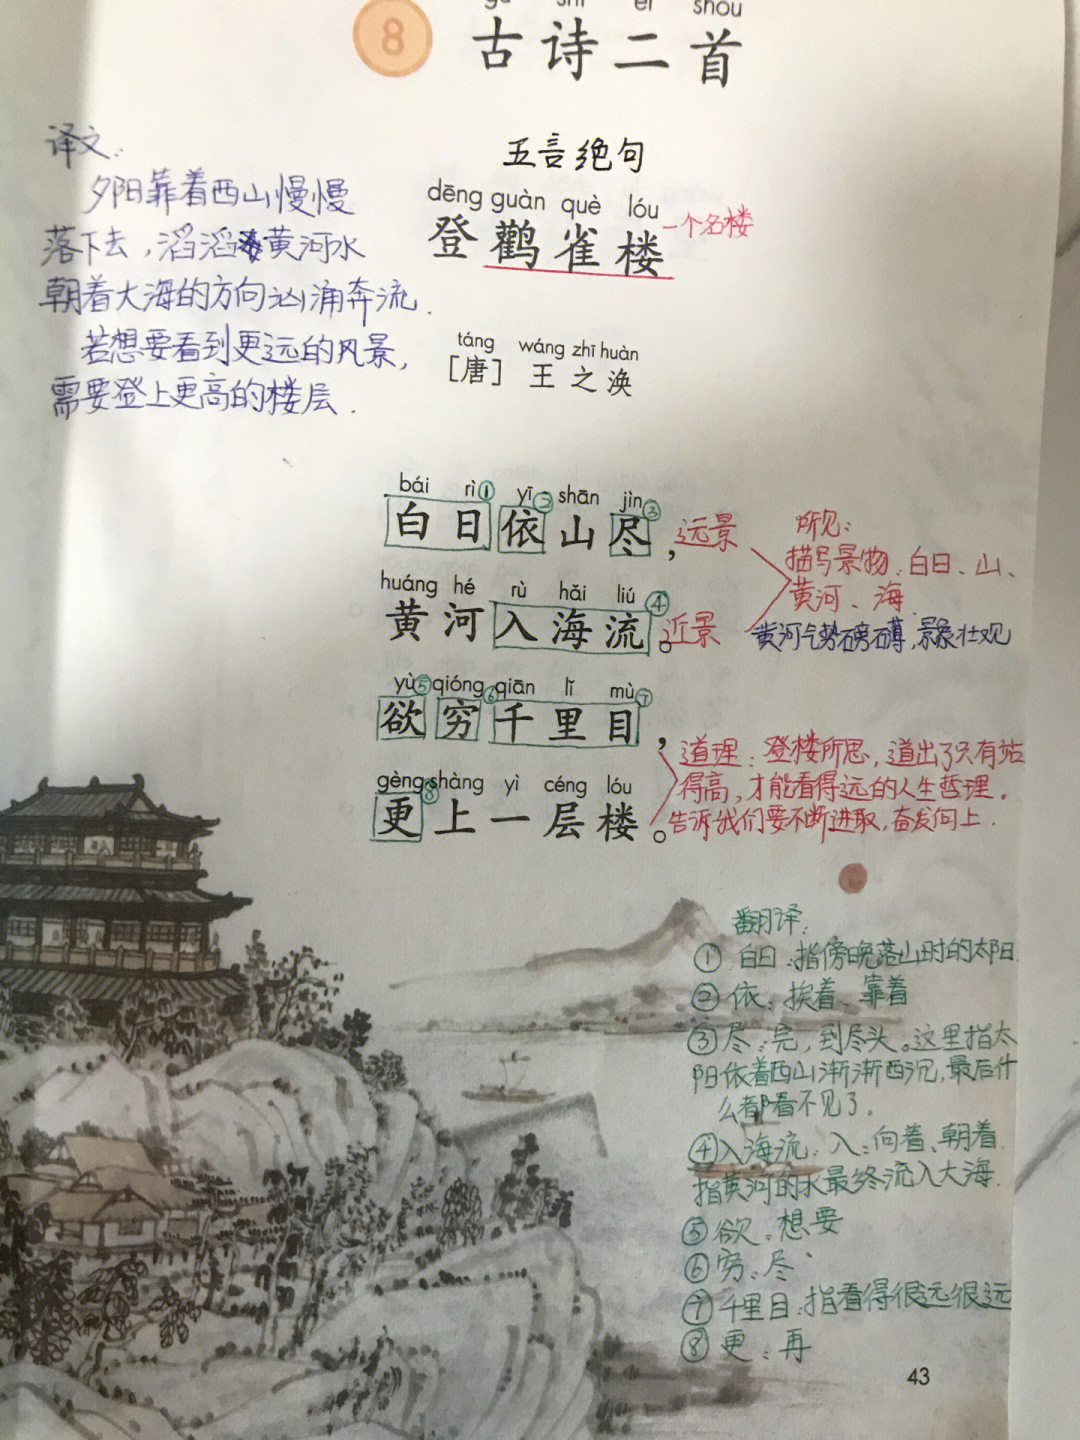 8
gǔ shī èr shǒu
古诗二首
五言绝句
dēng guàn què lóu
登鹳雀楼
一个名楼
táng wáng zhī huàn
[唐] 王之涣
译文：
夕阳靠着西山慢慢
落下去，滔滔黄河水
朝着大海的方向汹涌奔流.
若想要看到更远的风景，
需要登上更高的楼层.
bái rì① yī② shān jìn③
白日依山尽，
远景
huáng hé rù hǎi liú④
黄河入海流。
近景
所见：
描写景物：白日、山、
黄河、海
黄河气势磅礴，景象壮观
yù⑤ qióng⑥ qiān lǐ mù⑦
欲穷千里目，
gèng⑧ shàng yì céng lóu
更上一层楼。
道理：登楼所思，道出了只有站
得高，才能看得远的人生哲理.
告诉我们要不断进取，奋发向上.
翻译：
① 白日：指傍晚落山时的太阳.
② 依：挨着、靠着
③ 尽：完，到尽头。这里指太
阳依着西山渐渐西沉，最后什
么都看不见了。
④入海流：入：向着、朝着.
指黄河的水最终流入大海.
⑤ 欲：想要
⑥ 穷：尽
⑦ 千里目：指看得很远很远
⑧ 更：再
43